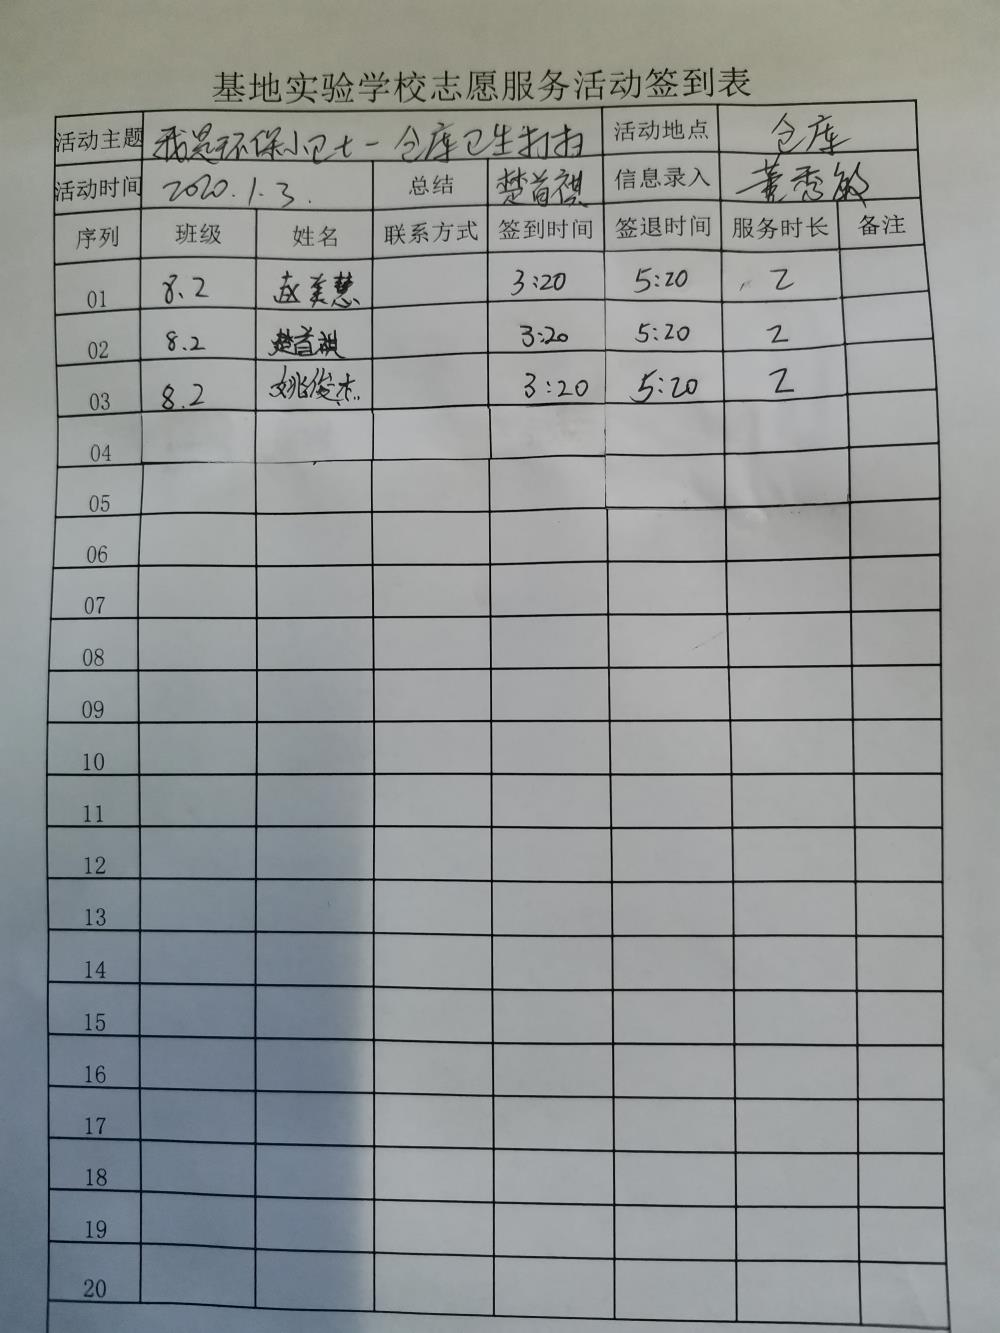 基地实验学校志愿服务活动签到表
活动主题 我是环保小卫士-仓库卫生打扫 活动地点 仓库
活动时间 2020.1.3. 总结 楚首祺 信息录入 董秀敏
序列 班级 姓名 联系方式 签到时间 签退时间 服务时长 备注
01 8.2 赵美慧 3:20 5:20 2
02 8.2 楚首祺 3:20 5:20 2
03 8.2 姚俊杰 3:20 5:20 2
04
05
06
07
08
09
10
11
12
13
14
15
16
17
18
19
20